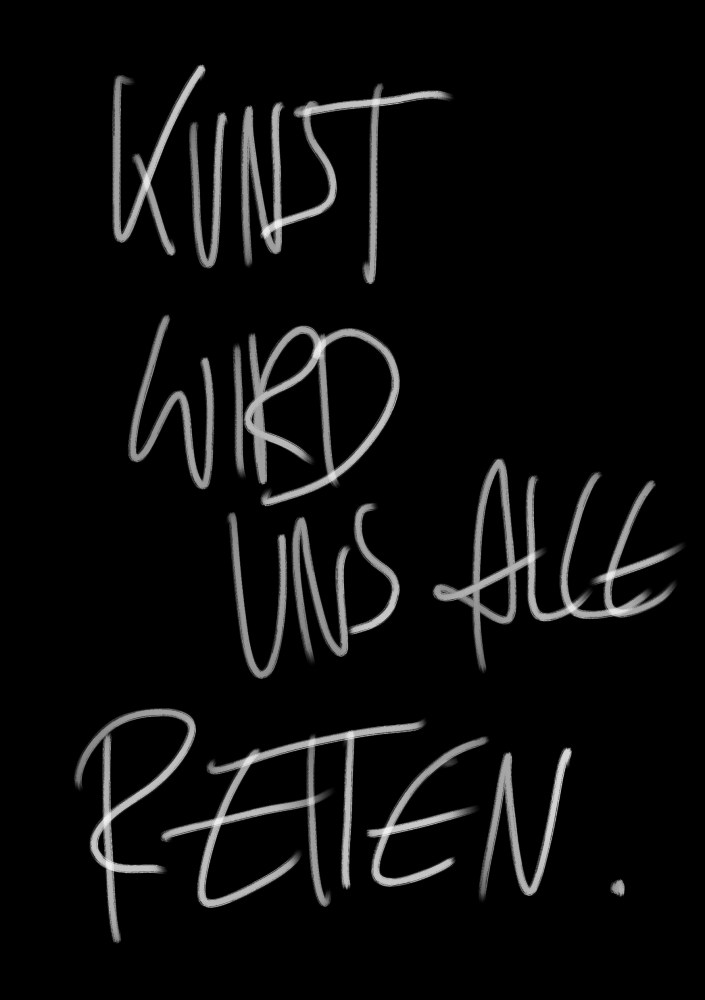 KUNST
WIRD
UNS ALLE
RETTEN.